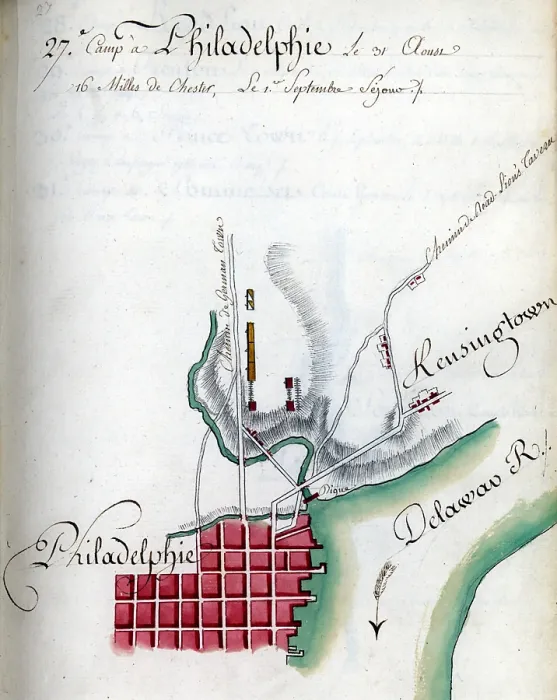 27
27.e Camp à Philadelphie Le 31 Aoust
16 Milles de Chester, Le 1.er Septembre Séjour ./.
Chemin de Read Lion's Taveau
Chemin de German Town
Kensingtown
Digue
Delawar R./.
Philadelphie